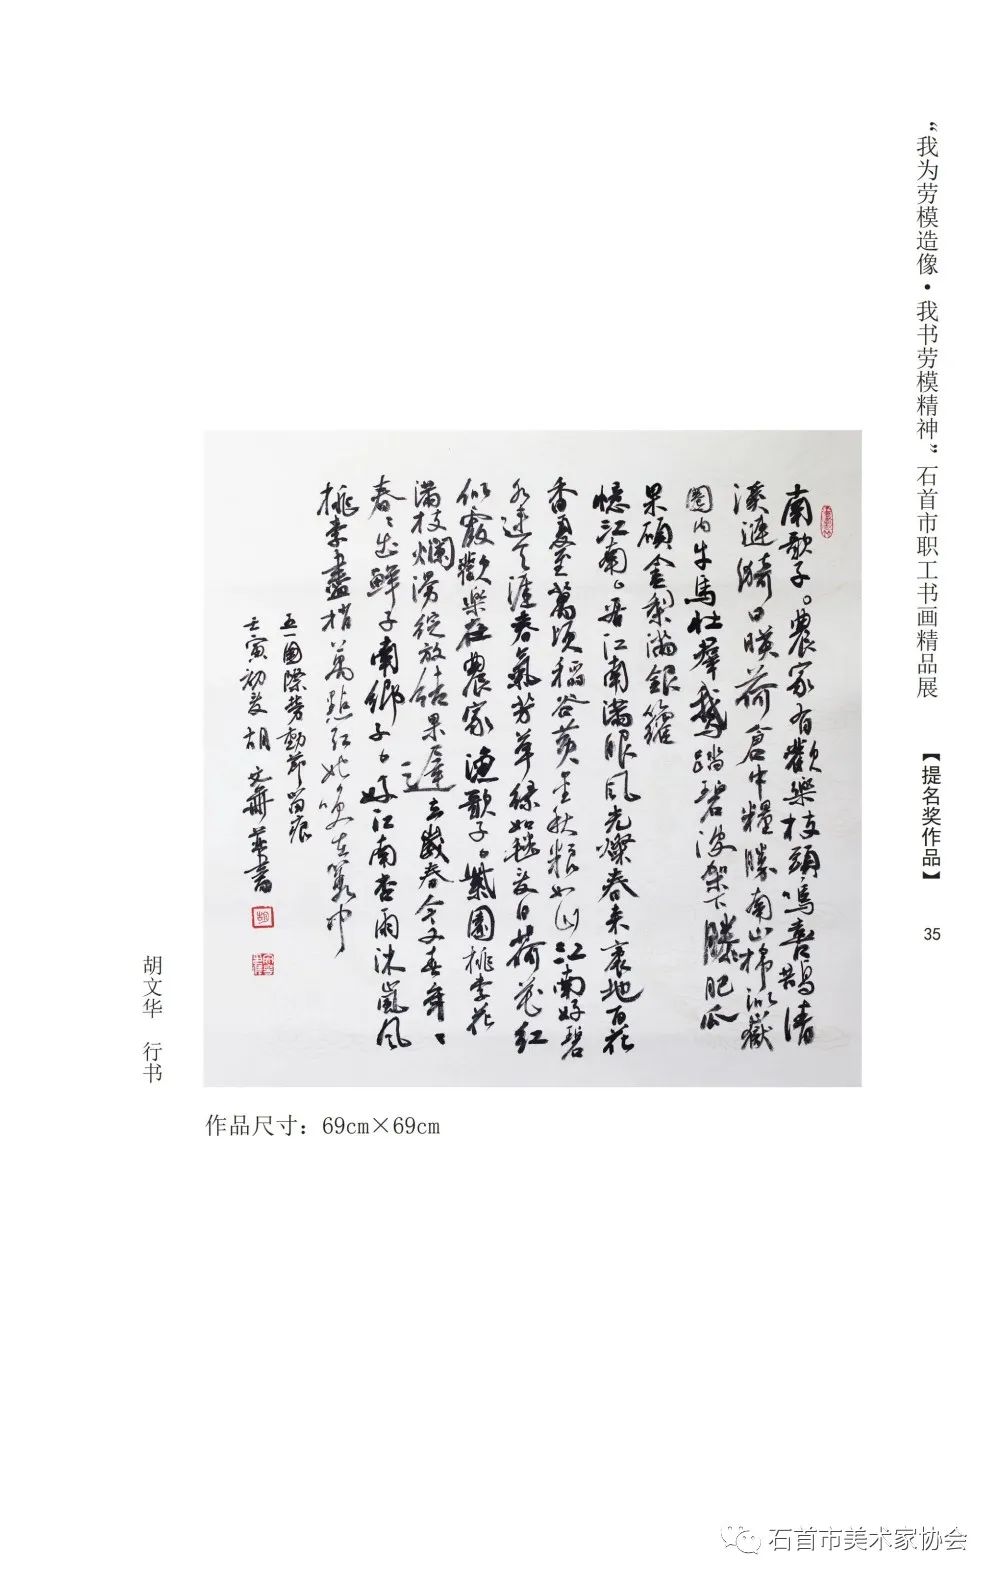 “我为劳模造像·我书劳模精神”石首市职工书画精品展
【提名奖作品】
35
南歌子。農家有歡樂枝頭鳴喜鵲清
溪漣漪日暎荷倉中糧勝南山棉似嶽
圈内牛馬壯羣鵝踏碧波架下滕肥瓜
果碩金梨滿銀籮
憶江南、居江南滿眼風光燦春來裹地百花
香夏至萬頃稻谷黄金秋粮如山江南好碧
水連天涯春氣芳草緑如毯夏日荷花红
似霞歡樂在農家 漁歌子、紫園桃李花
满枝爛漫綻放結果遲去歲春今又春年〻
春〻出鮮子南鄉子、好江南杏雨沐嵐風
桃李盡梢萬點红姹笑在叢中
五一國際勞動節留痕
壬寅初夏胡文華書
胡
胡文华 行书
作品尺寸：69cm×69cm
石首市美术家协会